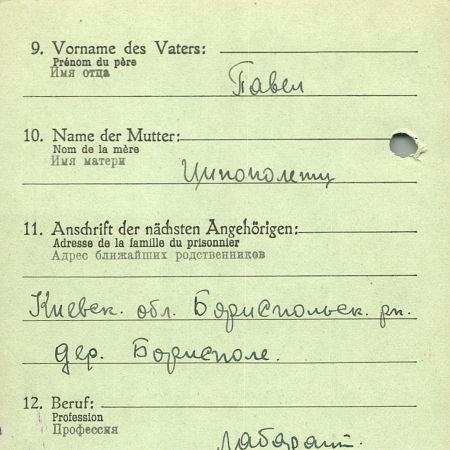 9. Vorname des Vaters:
Prénom du père
Имя отца
Павел
10. Name der Mutter:
Nom de la mère
Имя матери
11. Anschrift der nächsten Angehörigen:
Adresse de la famille du prisonnier
Адрес ближайших родственников
Киевск. обл. Бориспольск. рн.
дер. Борисполе.
12. Beruf:
Profession
Профессия
лаборант.